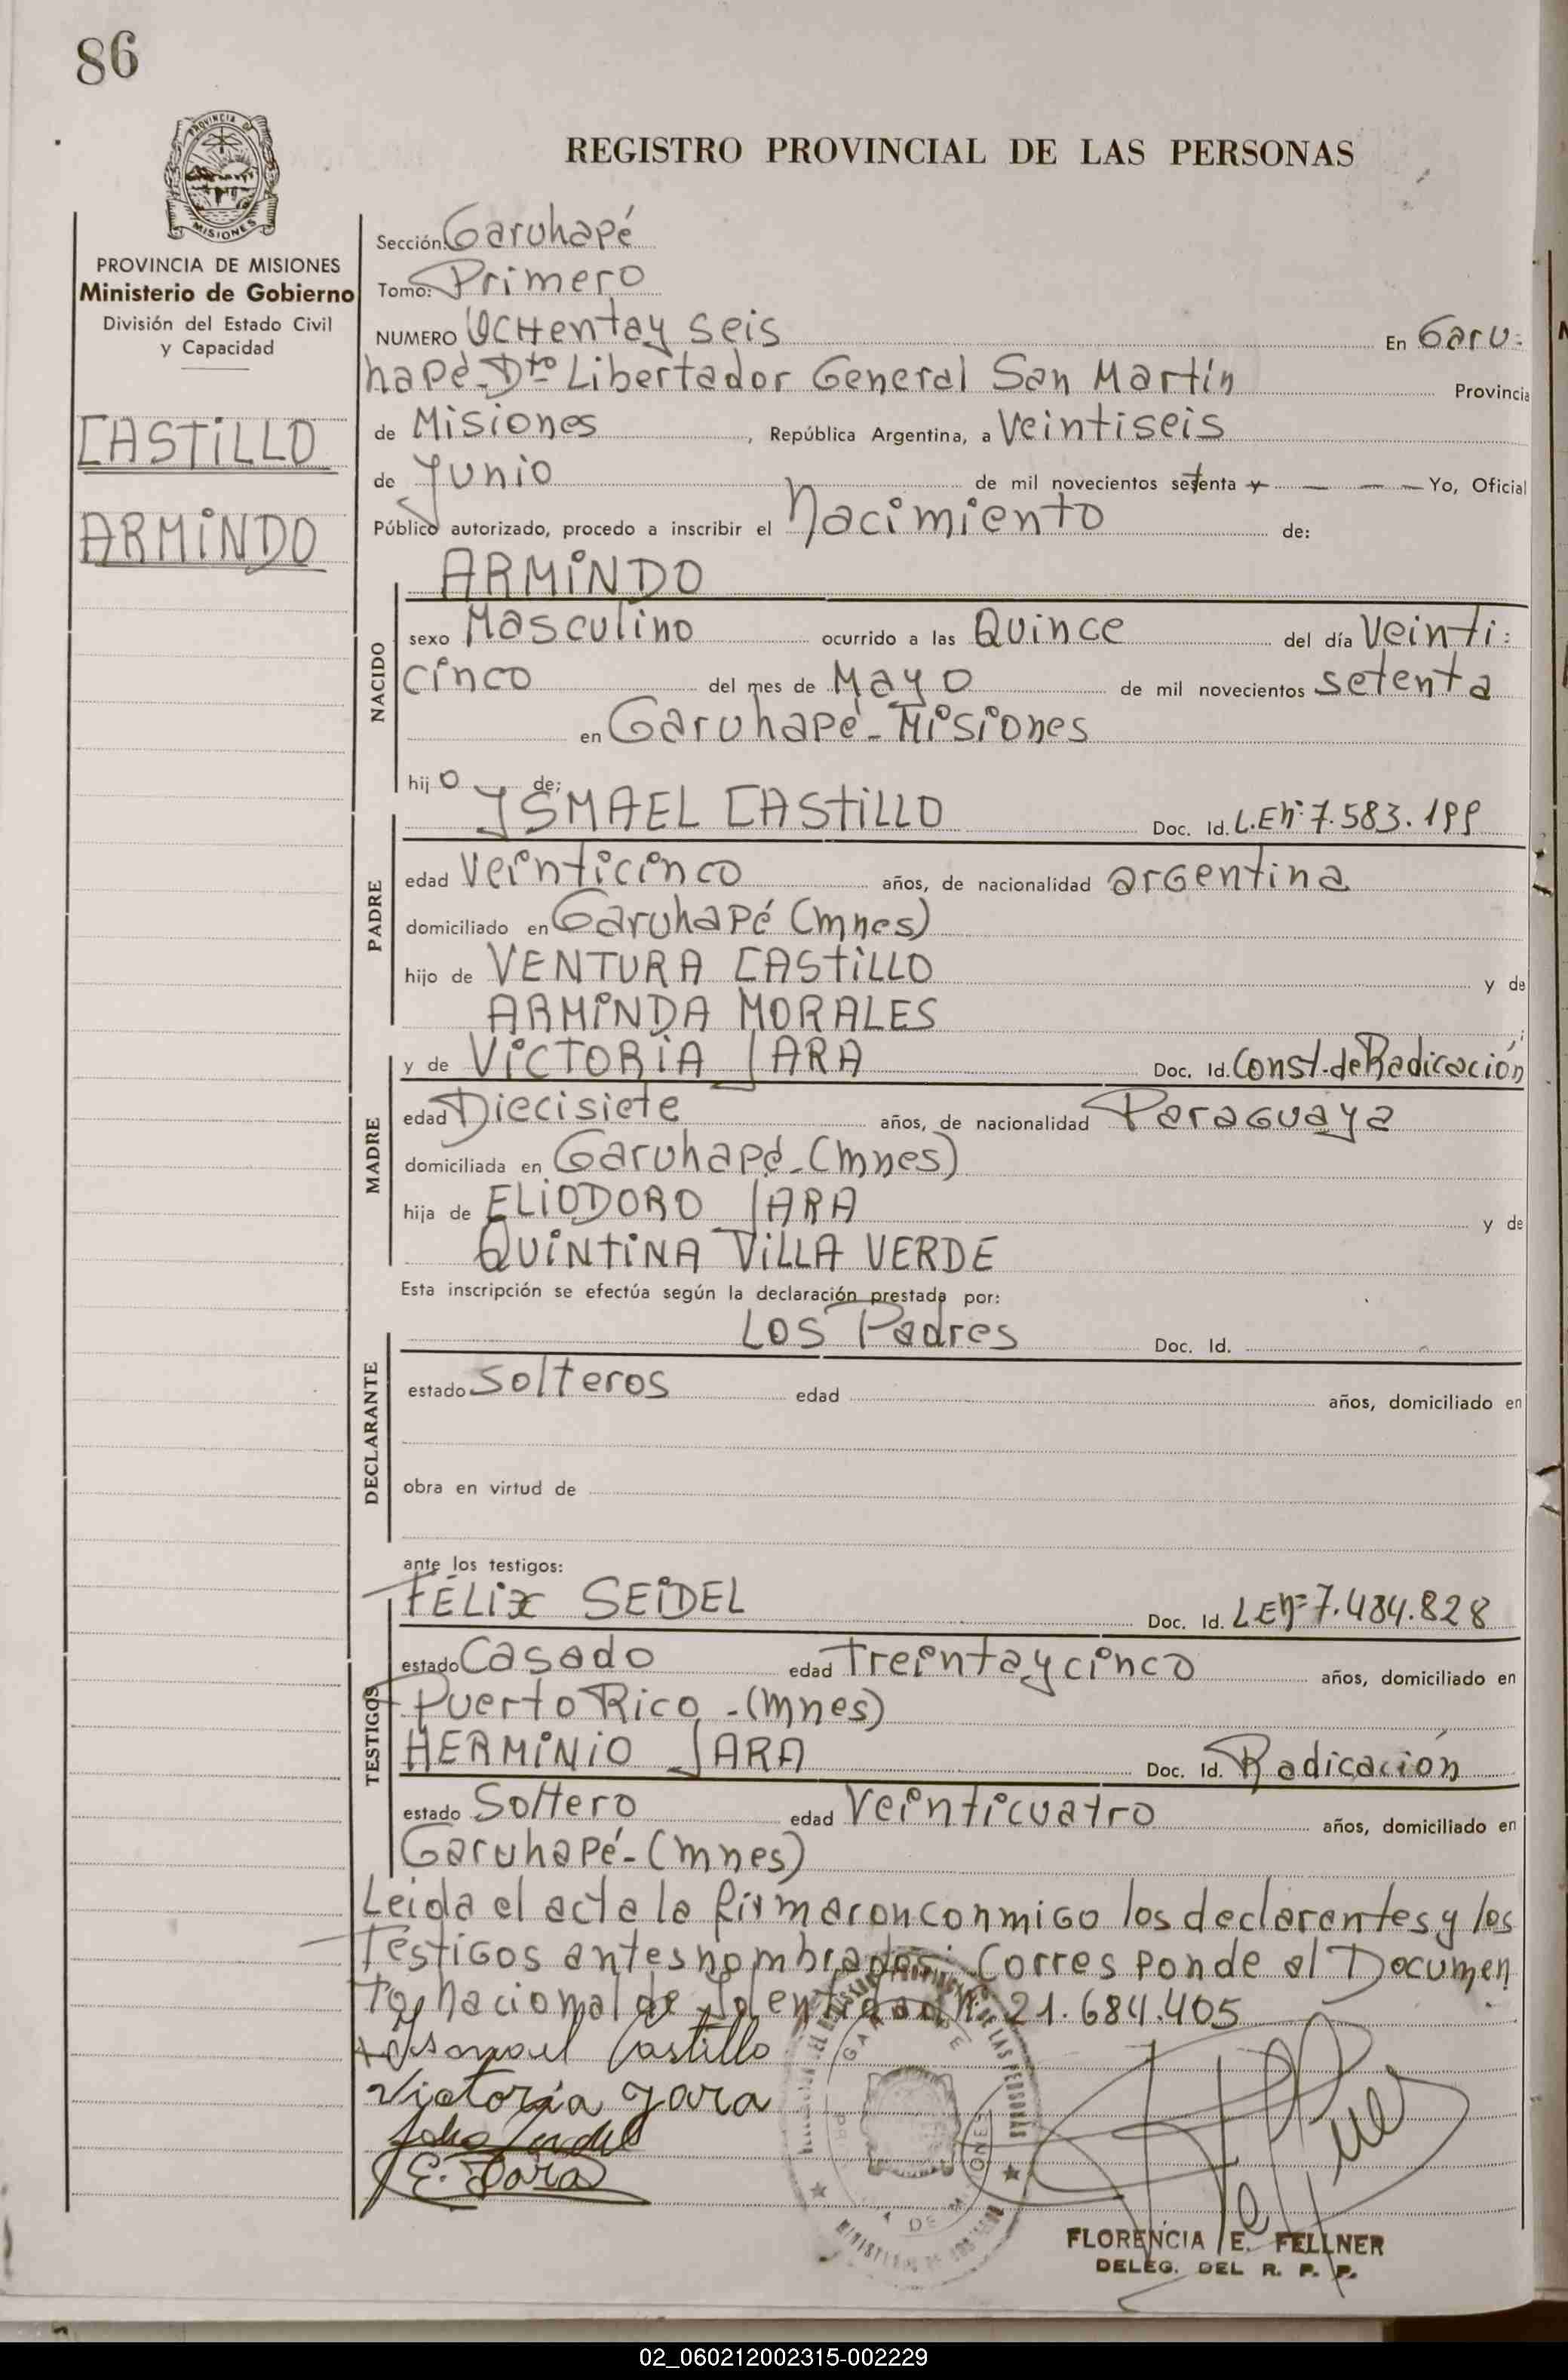 86
PROVINCIA DE
MISIONES
REGISTRO PROVINCIAL DE LAS PERSONAS
PROVINCIA DE MISIONES
Ministerio de Gobierno
División del Estado Civil
y Capacidad
CASTiLLO
ARMiNDO
Sección: Garuhapé
Tomo: Primero
NUMERO OCHentay seis En Garu=
hapé-Dto Libertador General San Martín Provincia
de Misiones, República Argentina, a Veintiseis
de Junio de mil novecientos setenta Yo, Oficial
Público autorizado, procedo a inscribir el Nacimiento de:
NACIDO
ARMiNDO
sexo Masculino ocurrido a las Quince del día Veinti=
cinco del mes de Mayo de mil novecientos setenta
en Garuhapé-Misiones
hijo de:
PADRE
YSMAEL CASTiLLO Doc. Id. L.En: 7.583.199
edad Veinticinco años, de nacionalidad argentina
domiciliado en Garuhapé (mnes)
hijo de VENTURA CASTiLLO y de
ARMiNDA MORALES
MADRE
y de ViCTORiA JARA Doc. Id. Const.de Radicación
edad Diecisiete años, de nacionalidad Paraguaya
domiciliada en Garuhapé-(mnes)
hija de ELiODORO JARA y de
QUiNTiNA ViLLA VERDE
Esta inscripción se efectúa según la declaración prestada por:
DECLARANTE
Los Padres Doc. Id.
estado Solteros edad años, domiciliado en
obra en virtud de
ante los testigos:
TESTIGOS
FÉLix SEiDEL Doc. Id. LEn= 7.484.828
estado Casado edad Treintaycinco años, domiciliado en
Puerto Rico -(mnes)
HERMiNiO JARA Doc. Id. Radicación
estado Soltero edad Veinticuatro años, domiciliado en
Garuhapé-(mnes)
Leida el acta la firmaron conmigo los declarantes y los
Testigos antes nombrados: Corresponde al Documen
to Nacional de Identidad N: 21.684.405
Ismael Castillo
Victoria Jara
E. Jara
FLORENCIA E. FELLNER
DELEG. DEL R. P. P.
02_060212002315-002229